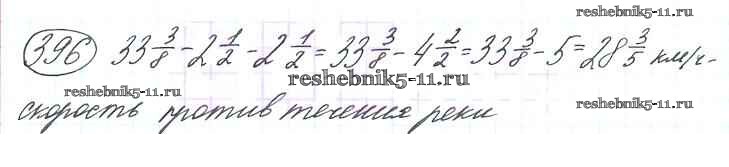 reshebnik5-11.ru
396 33 3/8 - 2 1/2 - 2 1/2 = 33 3/8 - 4 2/2 = 33 3/8 - 5 = 28 3/5 км/ч -
reshebnik5-11.ru
reshebnik5-11.ru reshebnik5-11.ru
скорость против течения реки